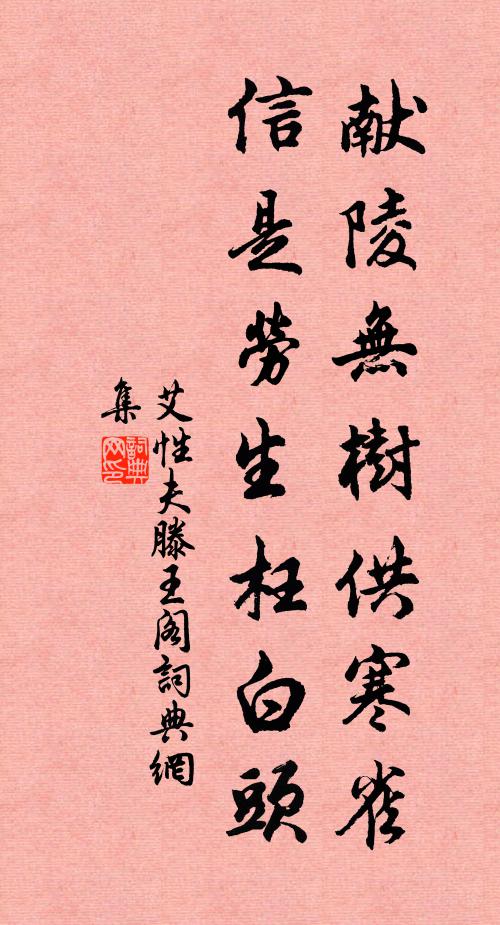 献陵無樹供寒雀
信是勞生枉白頭
艾性夫滕王阁詞典網
集
詞典網印